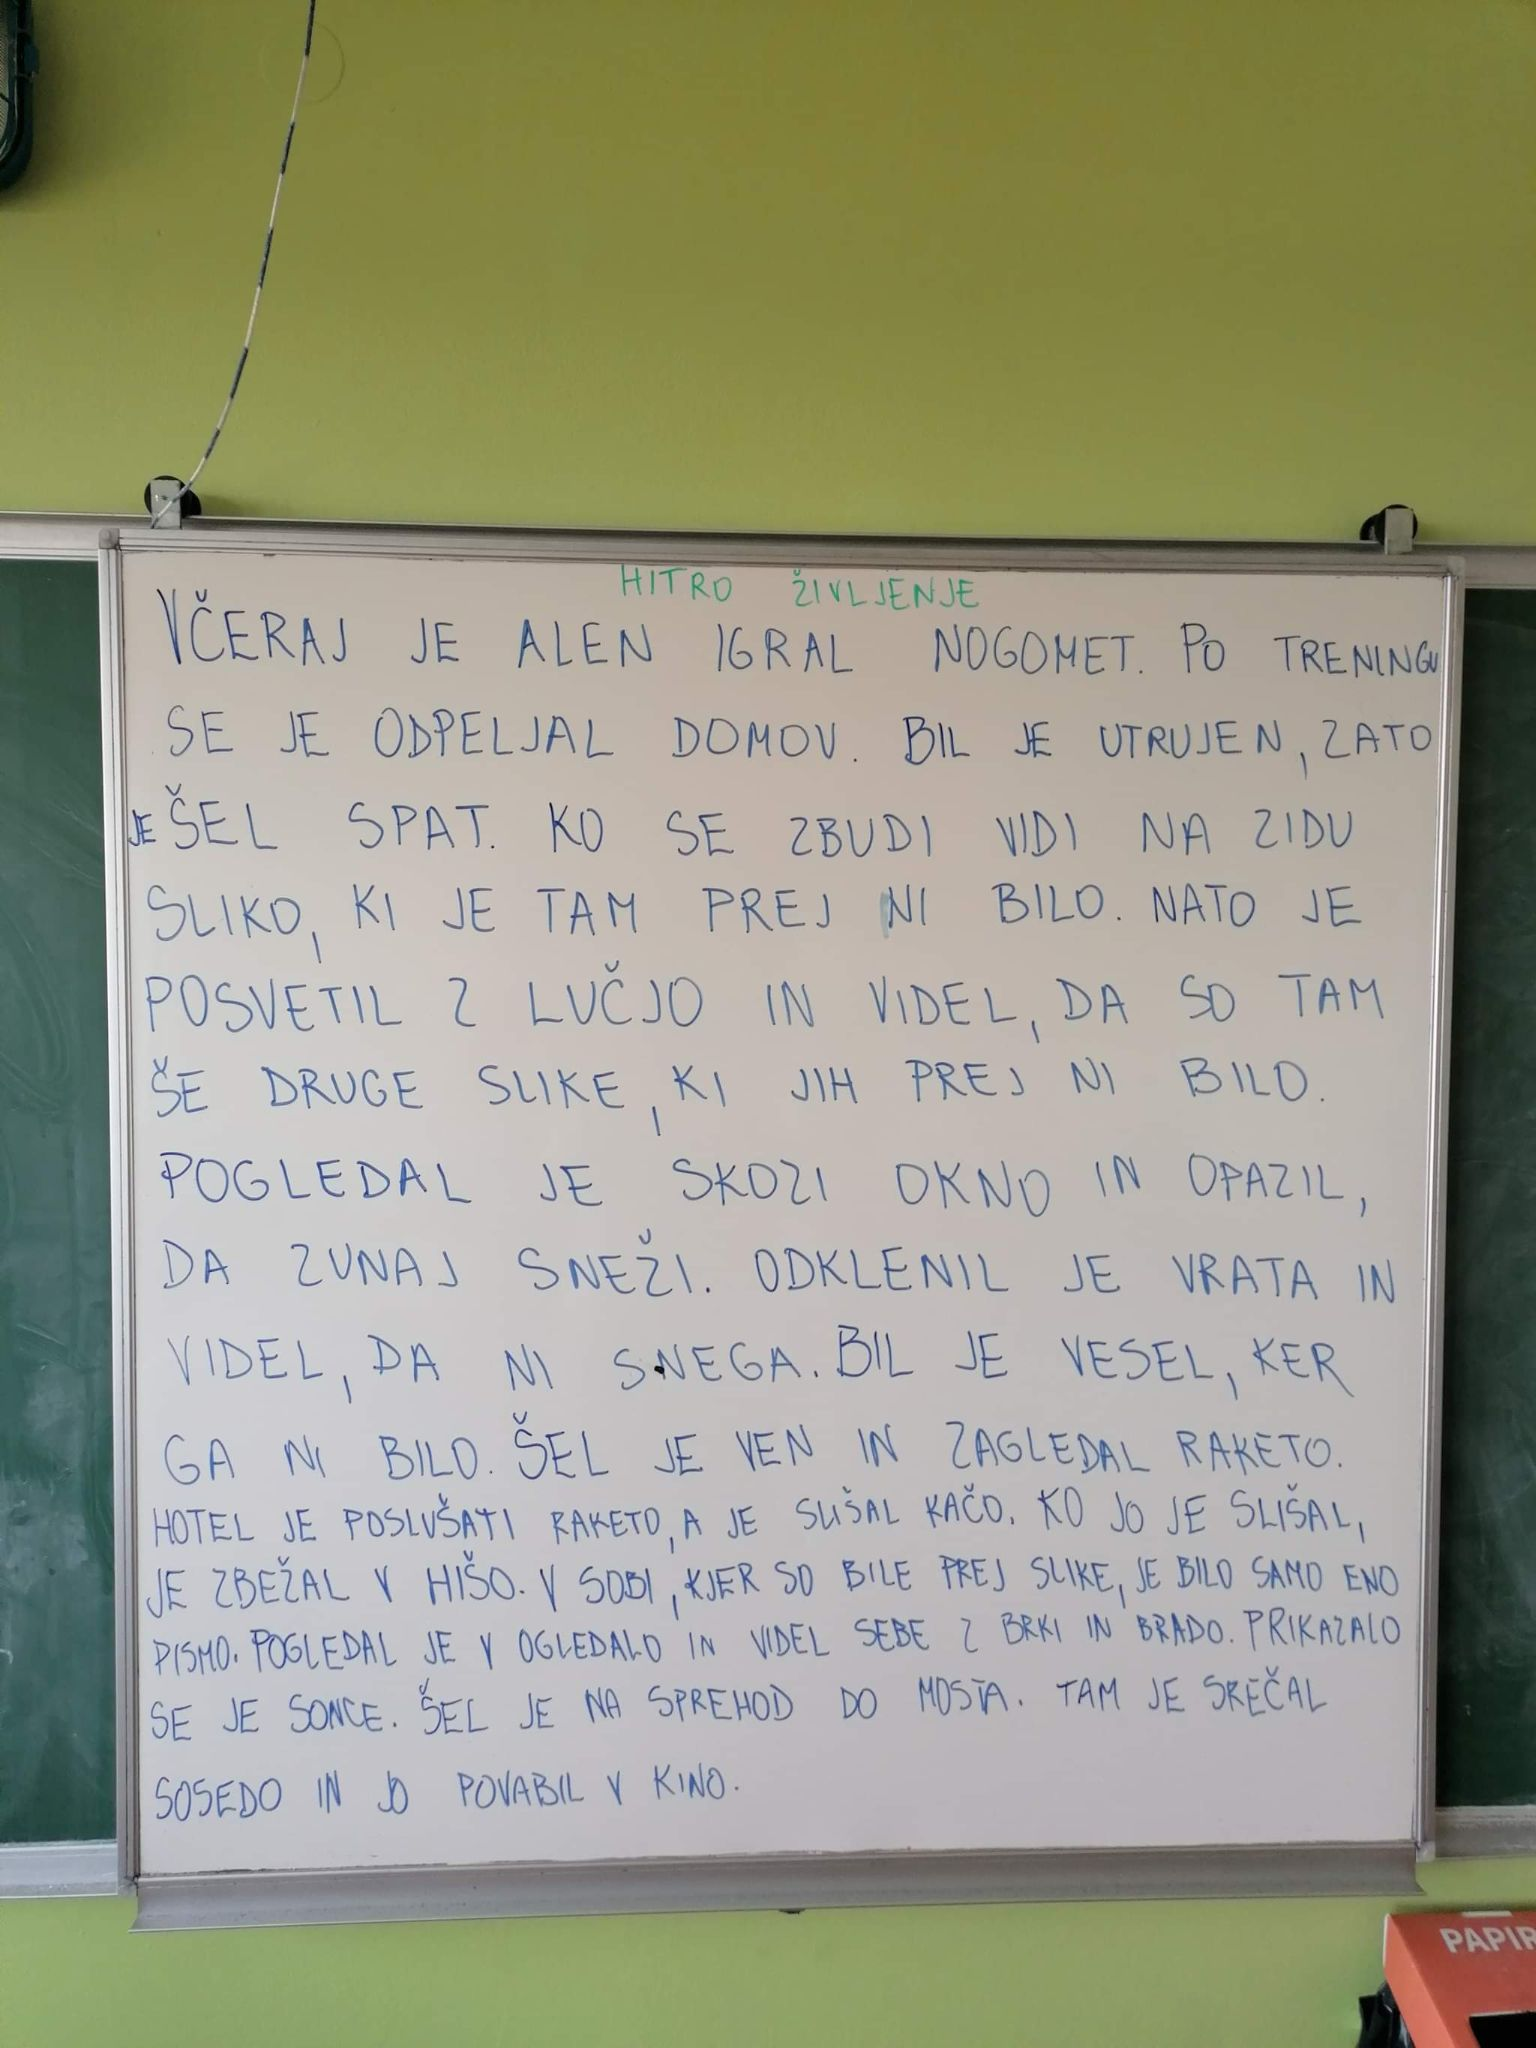 HITRO ŽIVLJENJE
VČERAJ JE ALEN IGRAL NOGOMET. PO TRENINGU
SE JE ODPELJAL DOMOV. BIL JE UTRUJEN, ZATO
JE ŠEL SPAT. KO SE ZBUDI VIDI NA ZIDU
SLIKO, KI JE TAM PREJ NI BILO. NATO JE
POSVETIL Z LUČJO IN VIDEL, DA SO TAM
ŠE DRUGE SLIKE, KI JIH PREJ NI BILO.
POGLEDAL JE SKOZI OKNO IN OPAZIL,
DA ZUNAJ SNEŽI. ODKLENIL JE VRATA IN
VIDEL, DA NI SNEGA. BIL JE VESEL, KER
GA NI BILO. ŠEL JE VEN IN ZAGLEDAL RAKETO.
HOTEL JE POSLUŠATI RAKETO, A JE SLIŠAL KAČO. KO JO JE SLIŠAL,
JE ZBEŽAL V HIŠO. V SOBI, KJER SO BILE PREJ SLIKE, JE BILO SAMO ENO
PISMO. POGLEDAL JE V OGLEDALO IN VIDEL SEBE Z BRKI IN BRADO. PRIKAZALO
SE JE SONCE. ŠEL JE NA SPREHOD DO MOSTA. TAM JE SREČAL
SOSEDO IN JO POVABIL V KINO.
PAPIR